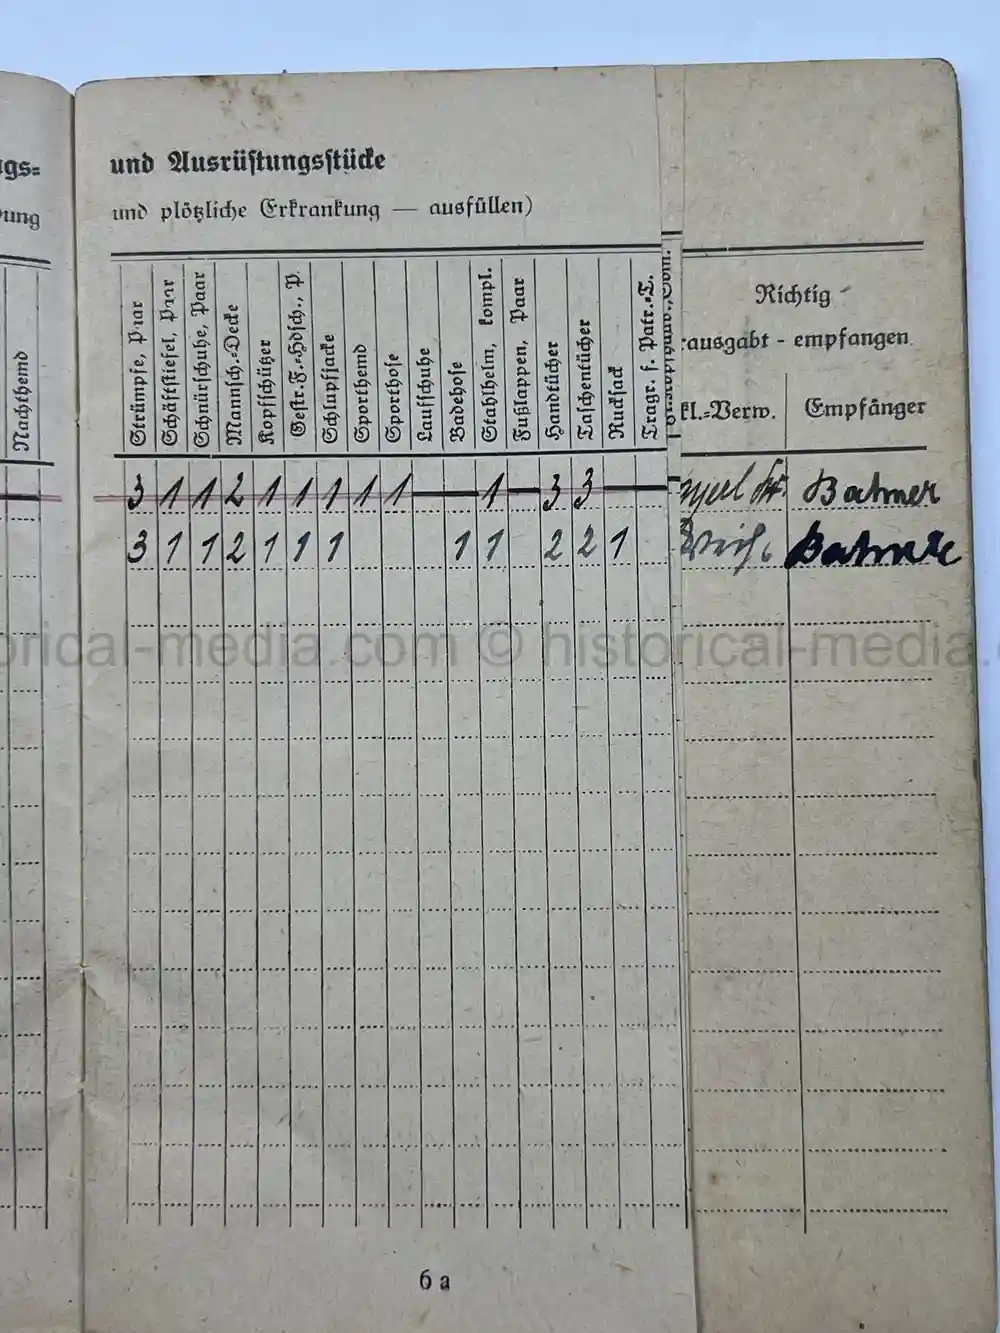 gs=
ung
Nachthemd
und Ausrüstungsstücke
und plötzliche Erkrankung — ausfüllen)
Strümpfe, Paar
Schaftstiefel, Paar
Schnürschuhe, Paar
Mannsch.=Decke
Kopfschützer
Gestr.F.=Hdsch., P.
Schlupfjacke
Sporthemd
Sporthose
Laufschuhe
Badehose
Stahlhelm, kompl.
Fußlappen, Paar
Handtücher
Taschentücher
Rucksack
Tragr. f. Patr.=T.
Richtig
rausgabt - empfangen
kl.=Verw. Empfänger
3 1 1 2 1 1 1 1 1 — 1 — 3 3 — Batmer
3 1 1 2 1 1 1 1 1 2 2 1 Batmer
orical-media.com © historical-media.
6 a